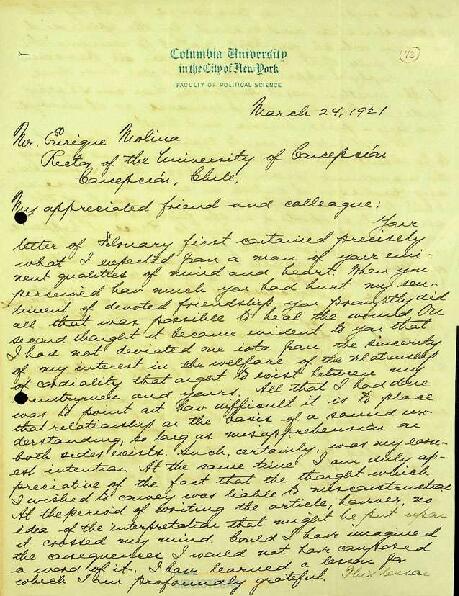 Columbia University
in the City of New York
FACULTY OF POLITICAL SCIENCE
March 24, 1921
Mr. Enrique Molina
Rector of the University of Concepción
Concepción, Chile.
My appreciated friend and colleague:
Your
letter of February first contained precisely
what I expected from a man of your emi-
nent qualities of mind and heart. When you
perceived how much you had hurt my sen-
timent of devoted friendship, you promptly did
all that was possible to heal the wound. On
second thought it became evident to you that
I had not deviated one iota from the sincerity
of my interest in the welfare of the relationship
of cordiality that ought to exist between my
countrymen and yours. All that I had done
was to point out how difficult it is to place
that relationship on the basis of a sound un-
derstanding, so long as misapprehension on
both sides exists. Such, certainly, was my earn-
est intention. At the same time I am duly ap-
preciative of the fact that the thought which
I wished to convey was liable to misconstruction.
At the period of writing the article, however, no
idea of the interpretation that might be put upon
it crossed my mind. Could I have imagined
the consequences I would not have composed
a word of it. I have learned a lesson for
which I am profoundly grateful.